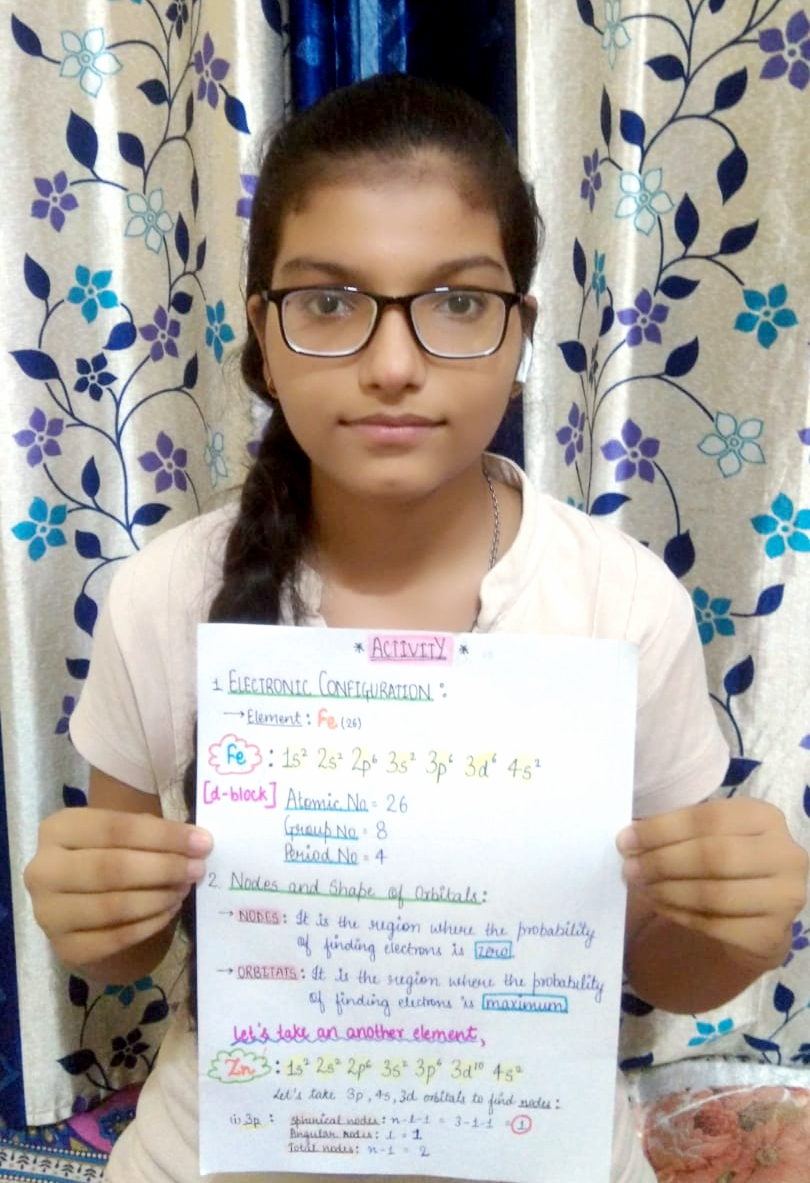 * ACTIVITY *
1. ELECTRONIC CONFIGURATION :
→ Element : Fe (26)
Fe : 1s² 2s² 2p⁶ 3s² 3p⁶ 3d⁶ 4s²
[d-block] Atomic No = 26
Group No = 8
Period No = 4
2. Nodes and Shape of Orbitals :
→ NODES : It is the region where the probability
of finding electrons is zero.
→ ORBITATS : It is the region where the probability
of finding electrons is maximum.
Let's take an another element,
Zn : 1s² 2s² 2p⁶ 3s² 3p⁶ 3d¹⁰ 4s²
Let's take 3p, 4s, 3d orbitals to find nodes :
(i) 3p : Spherical nodes : n-l-1 = 3-1-1 = 1
Angular nodes : l = 1
Total nodes : n-1 = 2